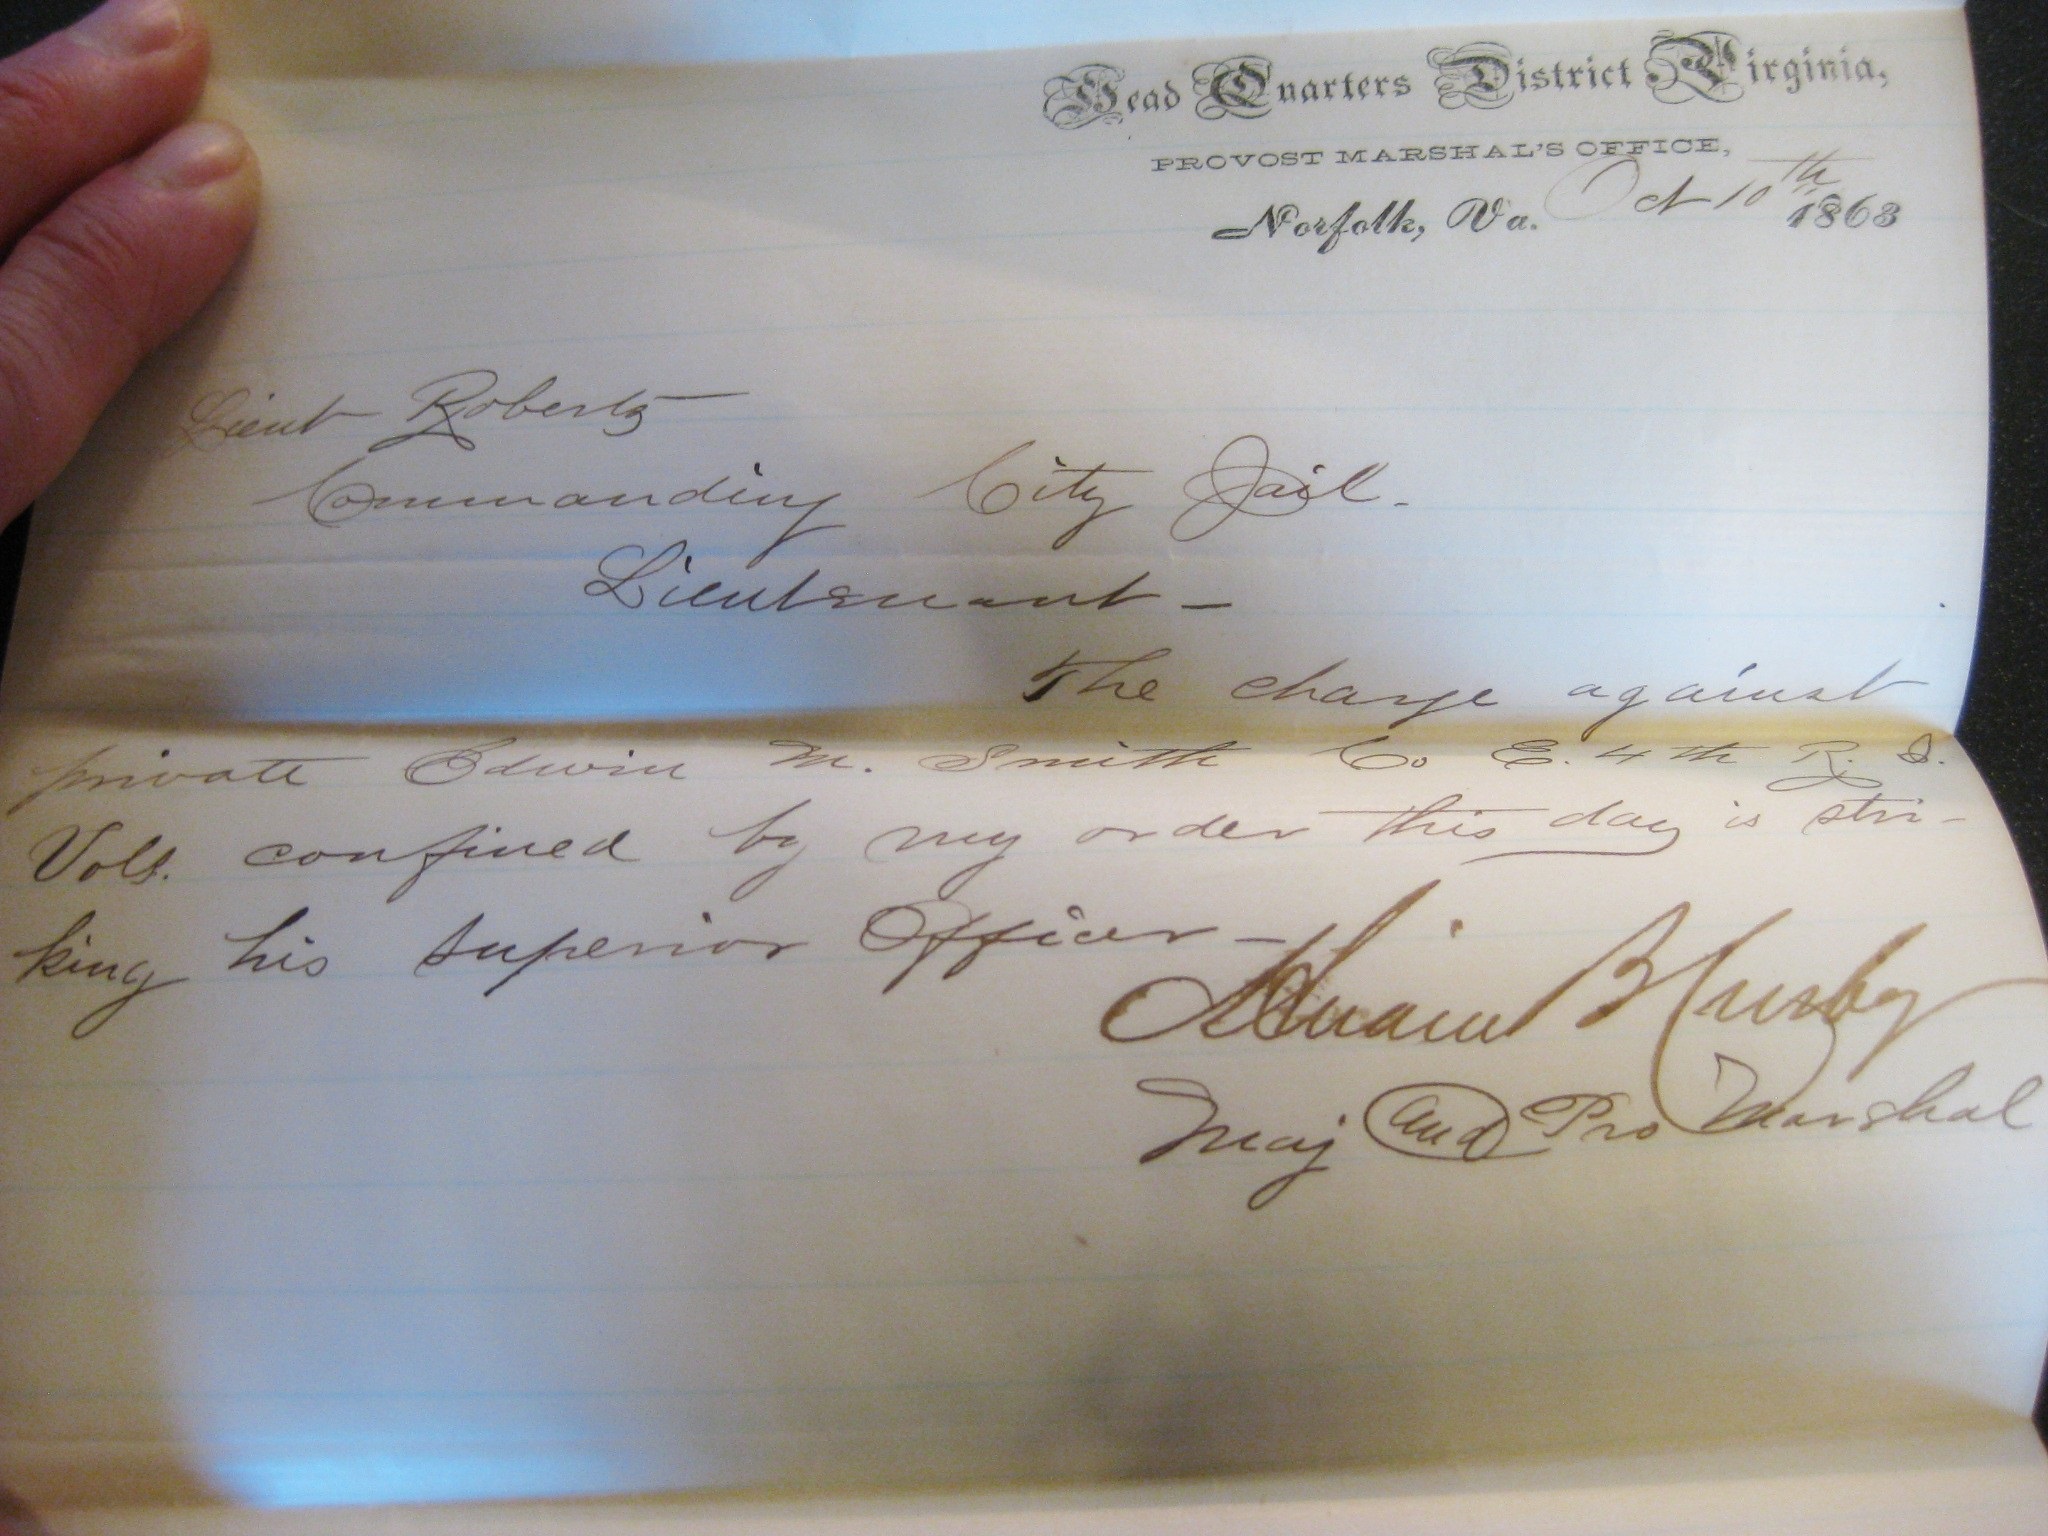 Head Quarters District Virginia,
PROVOST MARSHAL'S OFFICE,
Norfolk, Va. Oct 10th 1863
Lieut Roberts
Commanding City Jail.
Lieutenant –
The charge against
private Edwin M. Smith Co E. 4th R. I.
Vols. confined by my order this day is stri-
king his superior Officer –
B
Maj and Pro Marshal